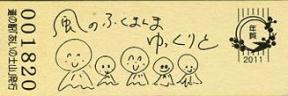 道の駅「あいの土山」発行
001820
風のふくまんま
ゆっくりと
年賀
2011